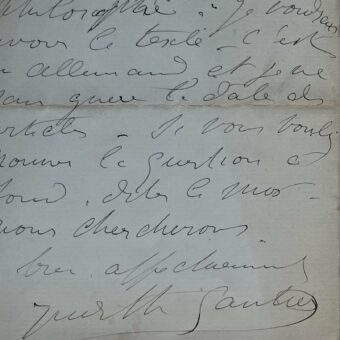 philosophie. Je voudrais
avoir le texte - c'est
en allemand et je ne
sais guère la date des
articles - Si vous voulez
la question
fond. dites le mot -
nous chercherons
bien affectueusement
Judith Gautier